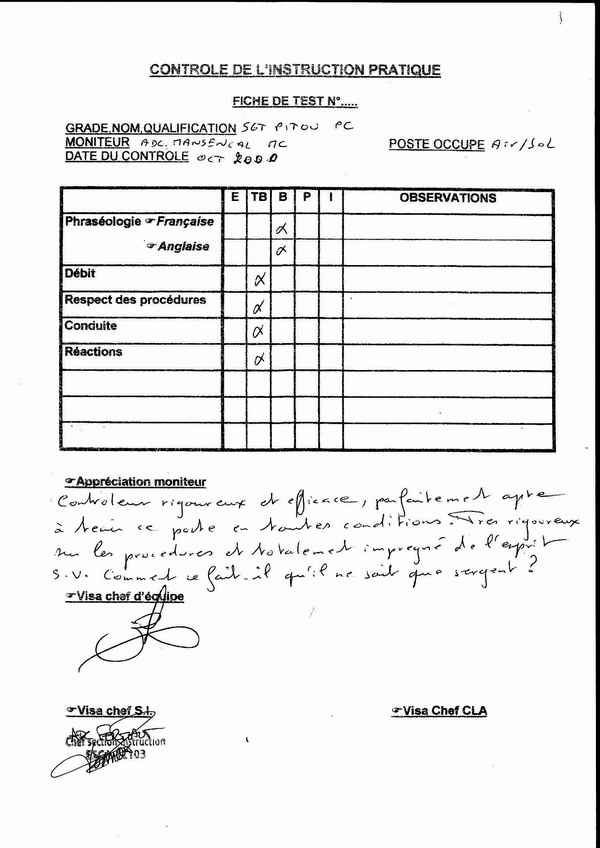 CONTROLE DE L'INSTRUCTION PRATIQUE
FICHE DE TEST N°.....
GRADE,NOM,QUALIFICATION SGT PITOU PC
MONITEUR ADC. MANSENCAL MC POSTE OCCUPE Air/SOL
DATE DU CONTROLE OCT 2000
E TB B P I OBSERVATIONS
Phraséologie ☞ Française x
☞ Anglaise x
Débit x
Respect des procédures x
Conduite x
Réactions x
☞Appréciation moniteur
Controleur rigoureux et efficace, parfaitement apte
à tenir ce poste en toutes conditions. Tres rigoureux
sur les procedures et totalement impregné de l'esprit
S.V. Comment ce fait-il qu'il ne soit que sergent ?
☞Visa chef d'équipe
☞Visa chef S.I. ☞Visa Chef CLA
Chef section instruction